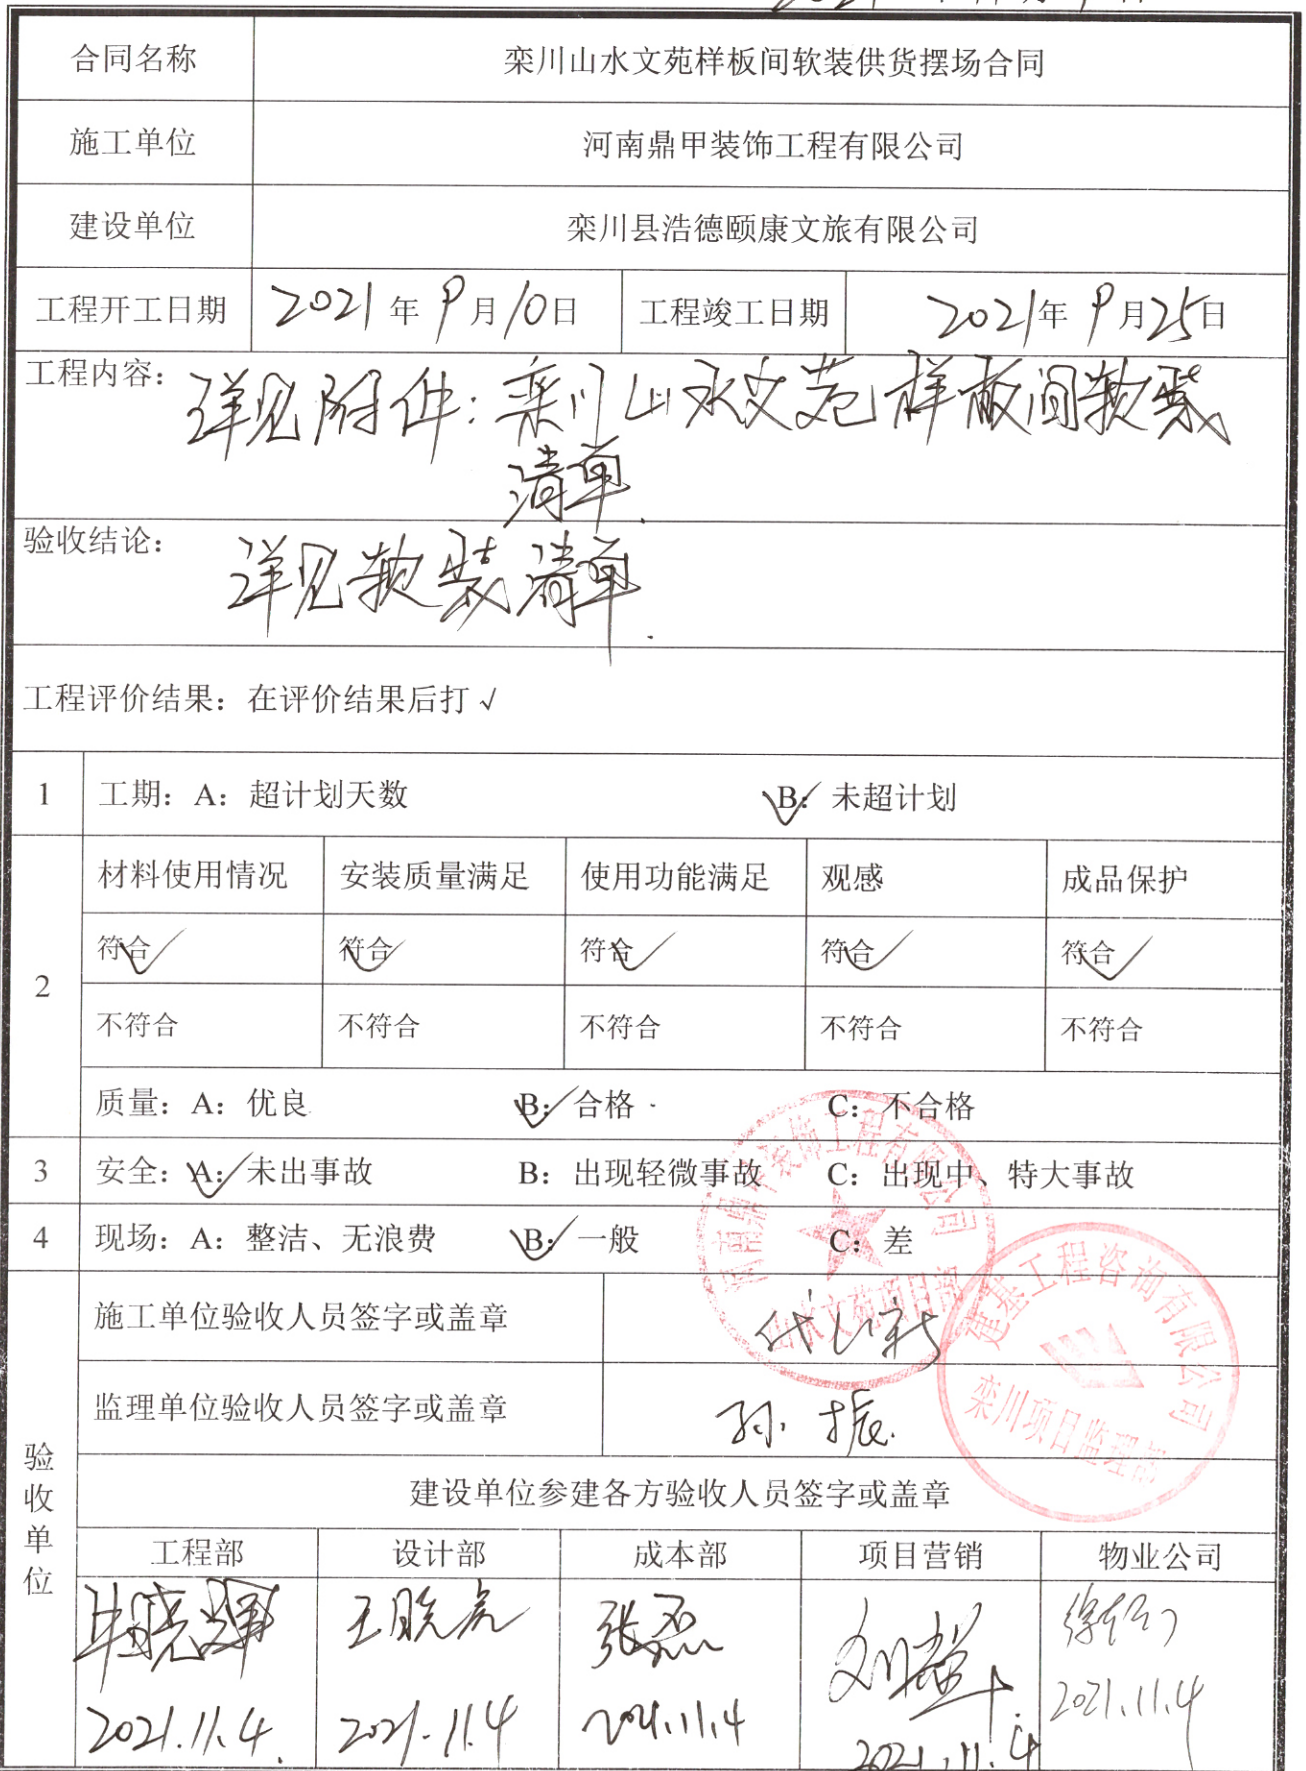 合同名称 栾川山水文苑样板间软装供货摆场合同
施工单位 河南鼎甲装饰工程有限公司
建设单位 栾川县浩德颐康文旅有限公司
工程开工日期 2021年9月10日 工程竣工日期 2021年9月25日
工程内容：详见附件：栾川山水文苑样板间软装
清单.
验收结论：详见软装清单.
工程评价结果：在评价结果后打√
1 工期：A：超计划天数 B：√ 未超计划
材料使用情况 安装质量满足 使用功能满足 观感 成品保护
符合√ 符合√ 符合√ 符合√ 符合√
2
不符合 不符合 不符合 不符合 不符合
质量：A：优良 B：√合格 C：不合格
3 安全：A：√未出事故 B：出现轻微事故 C：出现中、特大事故
4 现场：A：整洁、无浪费 B：√一般 C：差
河南鼎甲装饰工程有限公司
山水文苑项目部
建基工程咨询有限公司
栾川项目监理部
验收单位
施工单位验收人员签字或盖章
监理单位验收人员签字或盖章 孙振
建设单位参建各方验收人员签字或盖章
工程部 设计部 成本部 项目营销 物业公司
王晓亮 张磊
2021.11.4. 2021.11.4 2021.11.4 2021.11.4 2021.11.4